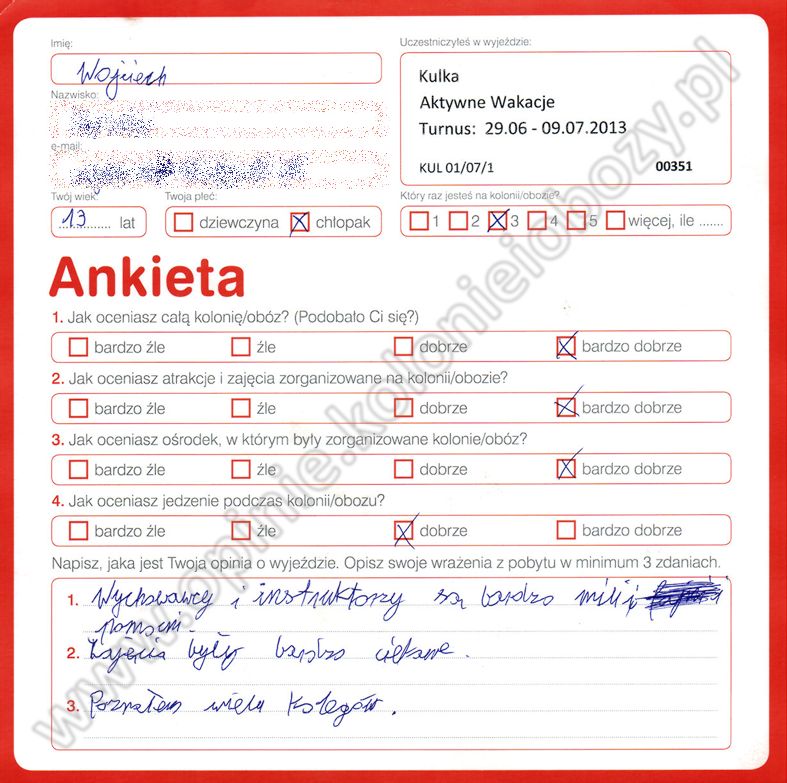 Imię:
Wojciech
Nazwisko:
e-mail:
Twój wiek:
13 lat
Twoja płeć:
dziewczyna chłopak
Uczestniczyłeś w wyjeździe:
Kulka
Aktywne Wakacje
Turnus: 29.06 - 09.07.2013
KUL 01/07/1 00351
Który raz jesteś na kolonii/obozie?
1 2 3 4 5 więcej, ile .......
Ankieta
1. Jak oceniasz całą kolonię/obóz? (Podobało Ci się?)
bardzo źle źle dobrze bardzo dobrze
2. Jak oceniasz atrakcje i zajęcia zorganizowane na kolonii/obozie?
bardzo źle źle dobrze bardzo dobrze
3. Jak oceniasz ośrodek, w którym były zorganizowane kolonie/obóz?
bardzo źle źle dobrze bardzo dobrze
4. Jak oceniasz jedzenie podczas kolonii/obozu?
bardzo źle źle dobrze bardzo dobrze
Napisz, jaka jest Twoja opinia o wyjeździe. Opisz swoje wrażenia z pobytu w minimum 3 zdaniach.
1. Wychowawcy i instruktorzy są bardzo mili i
pomocni.
2. Zajęcia były bardzo ciekawe.
3. Poznałem wielu kolegów.
www.opinie.kolonieiobozy.pl